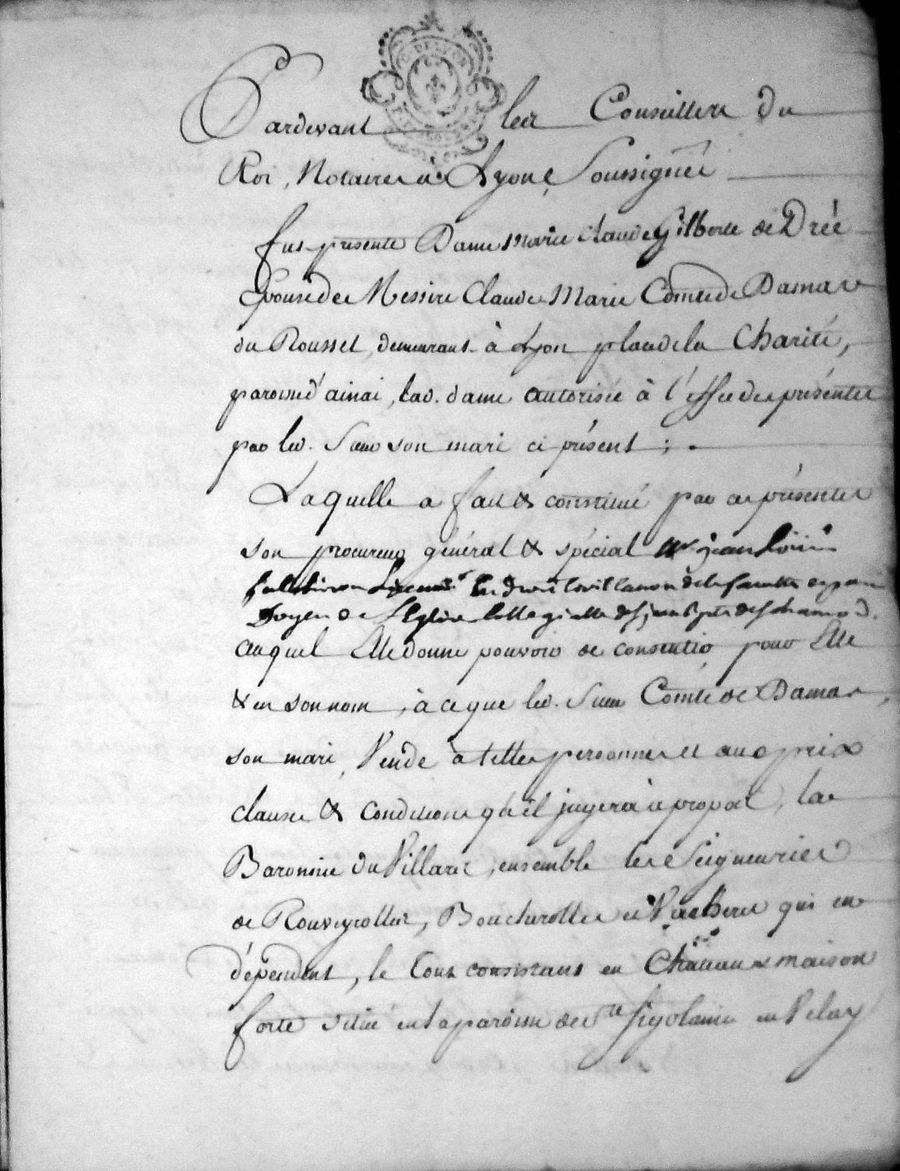 Pardevant les Conseillers du
Roi, Notaires a Lyon, Soussignés
fut présente Dame Marie Claude Gilberte de Drée
Epouse de Messire Claude Marie Comte de Damas
du Rousset, demeurant à Lyon place de la Charité,
paroisse d'ainai, lad. dame autorisée à l'effet des présentes
par led. Sieur son mari ci présent ;
Laquelle a fait & constitué par ces présentes
son procureur général & spécial Mr jean
en droit Civil Canon de la faculté de
Doyen de L'Eglise Collegialle de
auquel Elle donne pouvoir de consentir pour Elle
& en son nom, à ce que led. Sieur Comte de Damas,
son mari, Vende à telles personnes et aux prix
clauses & conditions qu'il jugera à propos, la
Baronnie du Villard, ensemble les Seigneuries
de Rouveyrolles, Boucherolles et Vacheres qui en
dépendent, le tout consistant en Chateau & maison
forte située en la paroisse de Ste Sigolaine en Velay